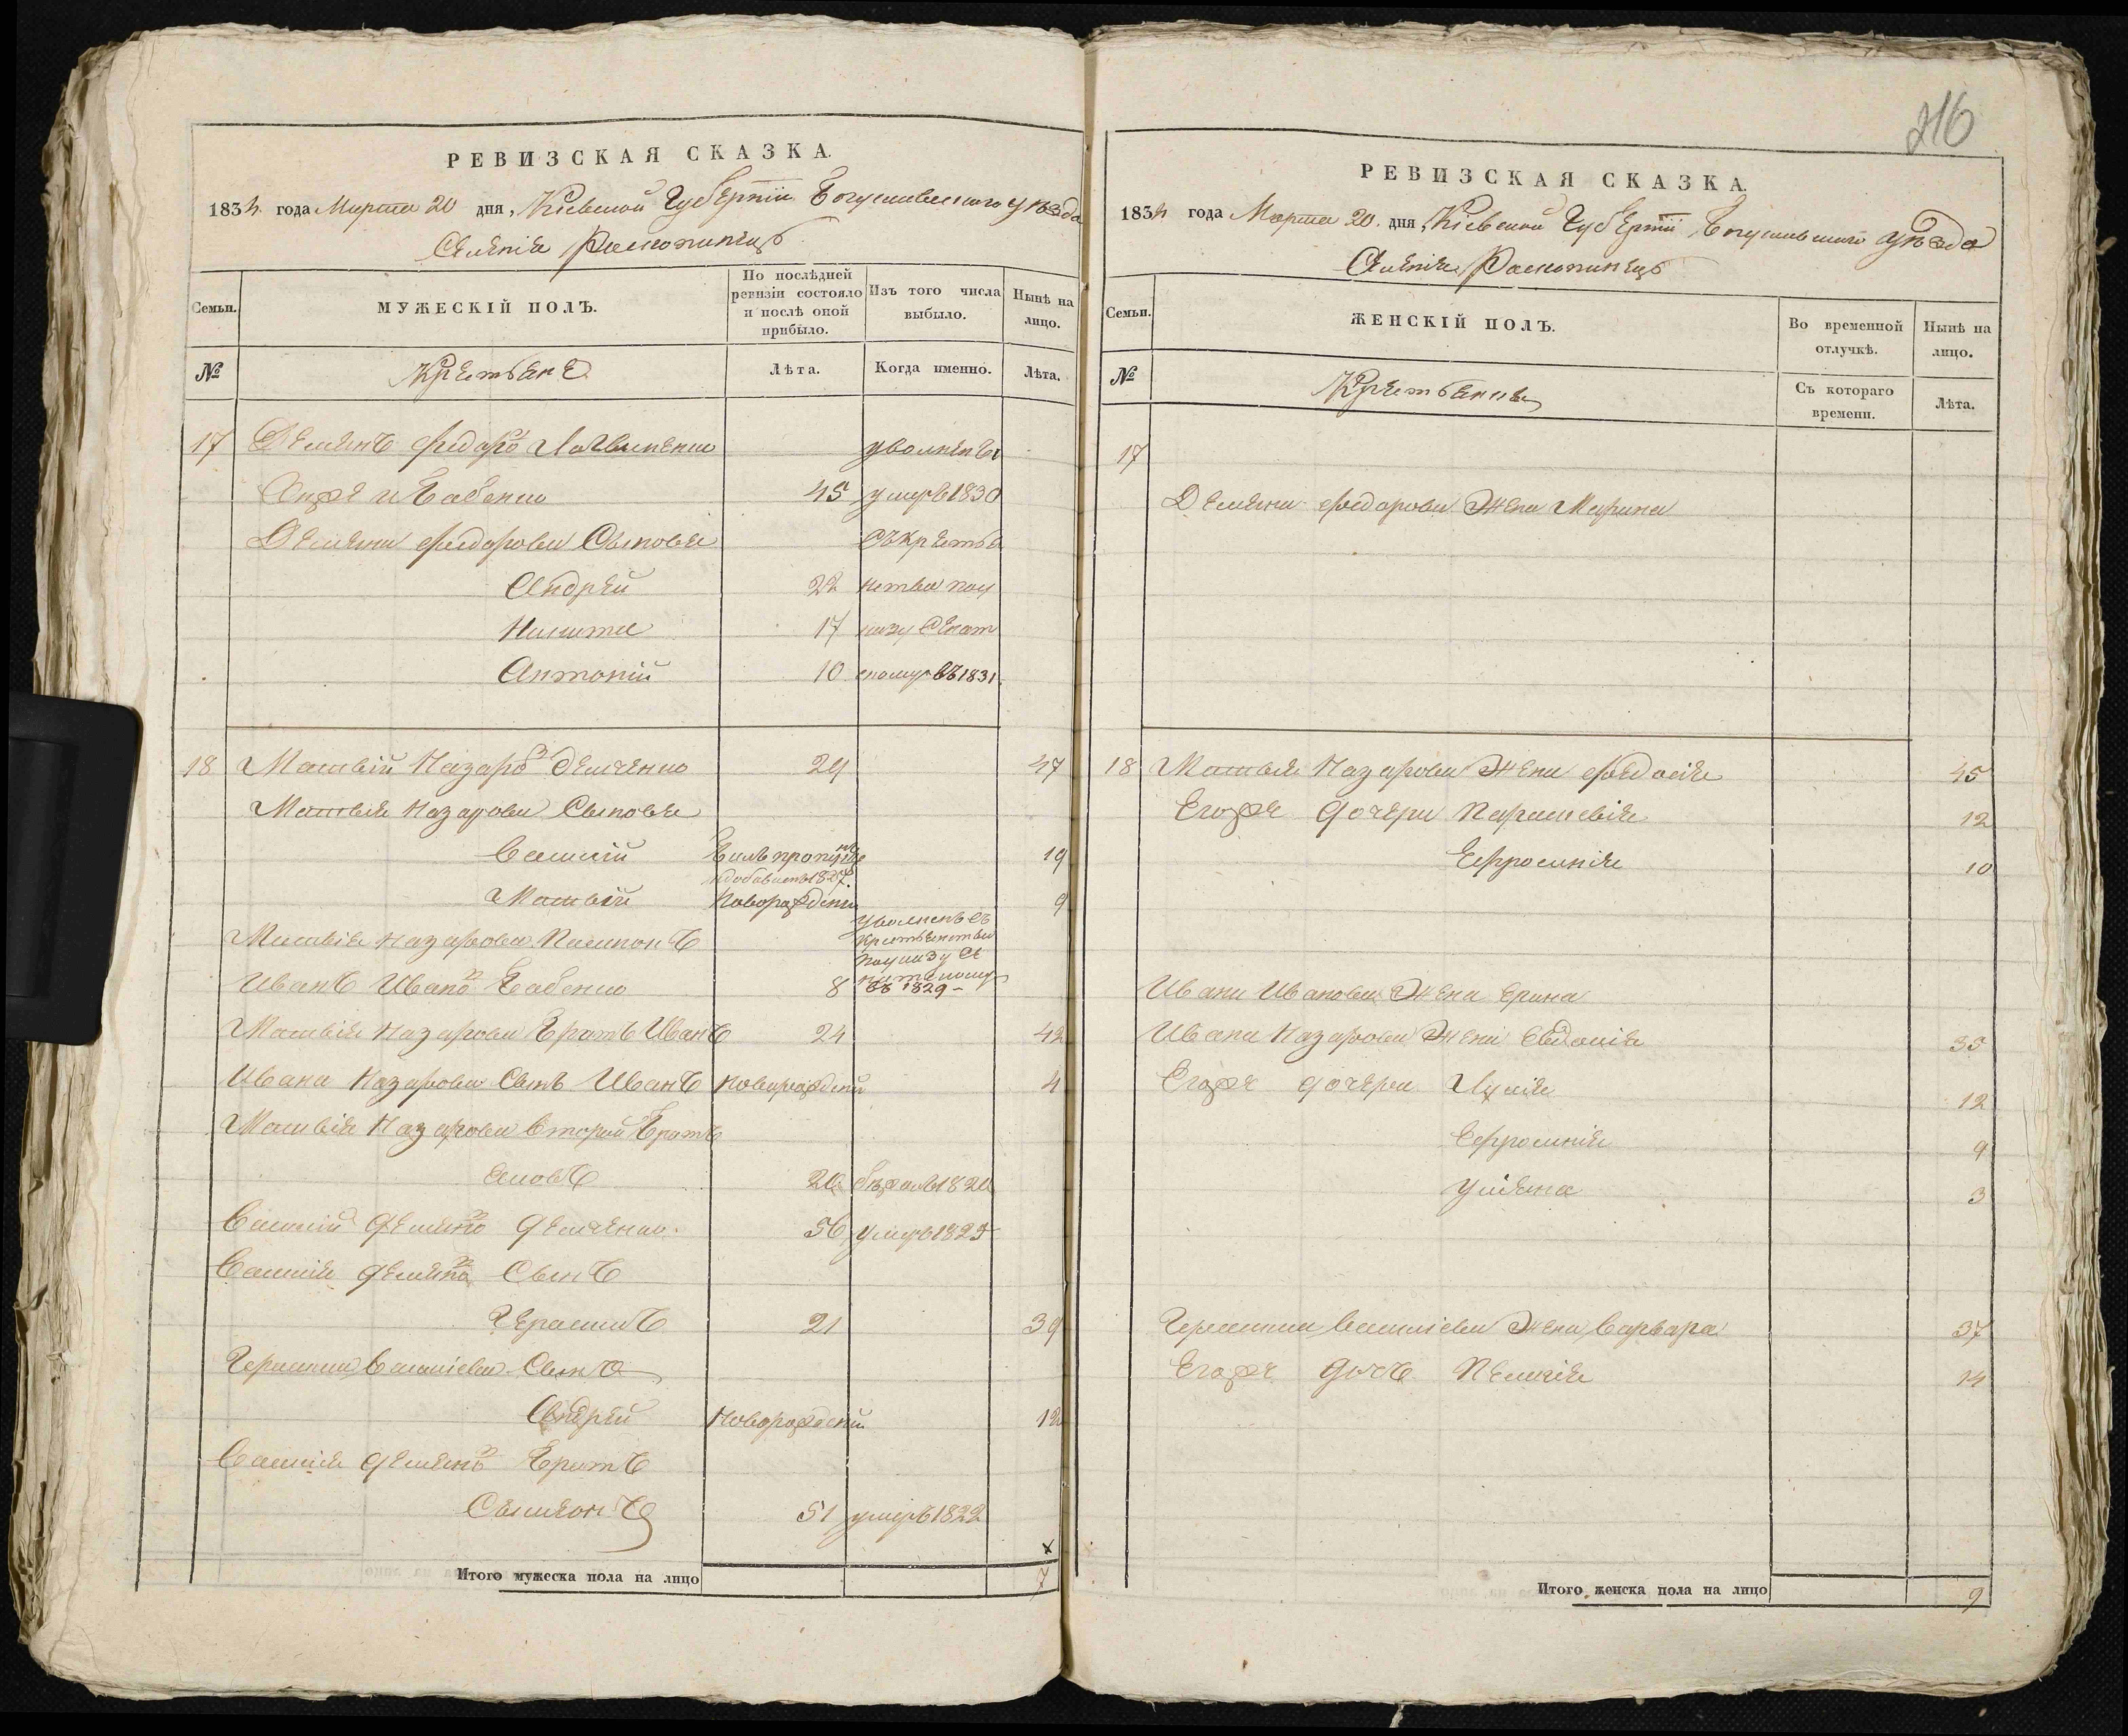 216
РЕВИЗСКАЯ СКАЗКА.
1834 года Марта 20 дня, Кіевской Губерніи Богуславскаго уѣзда
Селенія Раскопинецъ
Семьи.
МУЖЕСКІЙ ПОЛЪ.
По послѣдней ревизіи состояло и послѣ оной прибыло.
Изъ того числа выбыло.
Нынѣ на лицо.
№
Крестьяне
Лѣта.
Когда именно.
Лѣта.
17 Демянъ Федоро
Онже и Бабенко 45 умеръ 1830
Демяна Федорова Сыновья
Андрей 22
Никита 17
Антоній 10 1831
18 Матвій Назаро Демченко 29 47
Матвія Назарова Сыновья
Василій Былъ пропущ 19
1827
Матвій Новорожденъ 9
Уволненъ съ
Матвія Назарова
Иванъ Ивано Бабенко 8 въ 1829
Матвія Назарова Братъ Иванъ 24 42
Ивана Назарова Сынъ Иванъ Новорожденій 4
Матвія Назарова Вторый Братъ
Яковъ 20
Василій Демяно Демченко 56 умеръ 1825
Василія Демяно Сынъ
Герасимъ 21 39
Герасима Василіева Сынъ
Андрій Новорожденій 12
Василія Демяно Братъ
Сымеонъ 51 умеръ 1822
Итого мужеска пола на лицо 7
РЕВИЗСКАЯ СКАЗКА.
1834 года Марта 20. дня, Кіевской Губерніи, Богуславскаго Уѣзда
Селенія Раскопинецъ
Семьи.
ЖЕНСКІЙ ПОЛЪ.
Во временной отлучкѣ.
Нынѣ на лицо.
№
Крестьянки
Съ котораго времени.
Лѣта.
17
Демяна Федорова Жена Марина
18 Матвія Назарова Жена Феодосія 45
Егоже дочери Параскевія 12
Ефросинія 10
Ивана Иванова Жена Ерина
Ивана Назарова Жена Евдокія 35
Егоже дочери 12
Ефросинія 9
Уліяна 3
Герасима Василіева Жена Варвара 37
Егоже дочь Пелагія 14
Итого женска пола на лицо 9